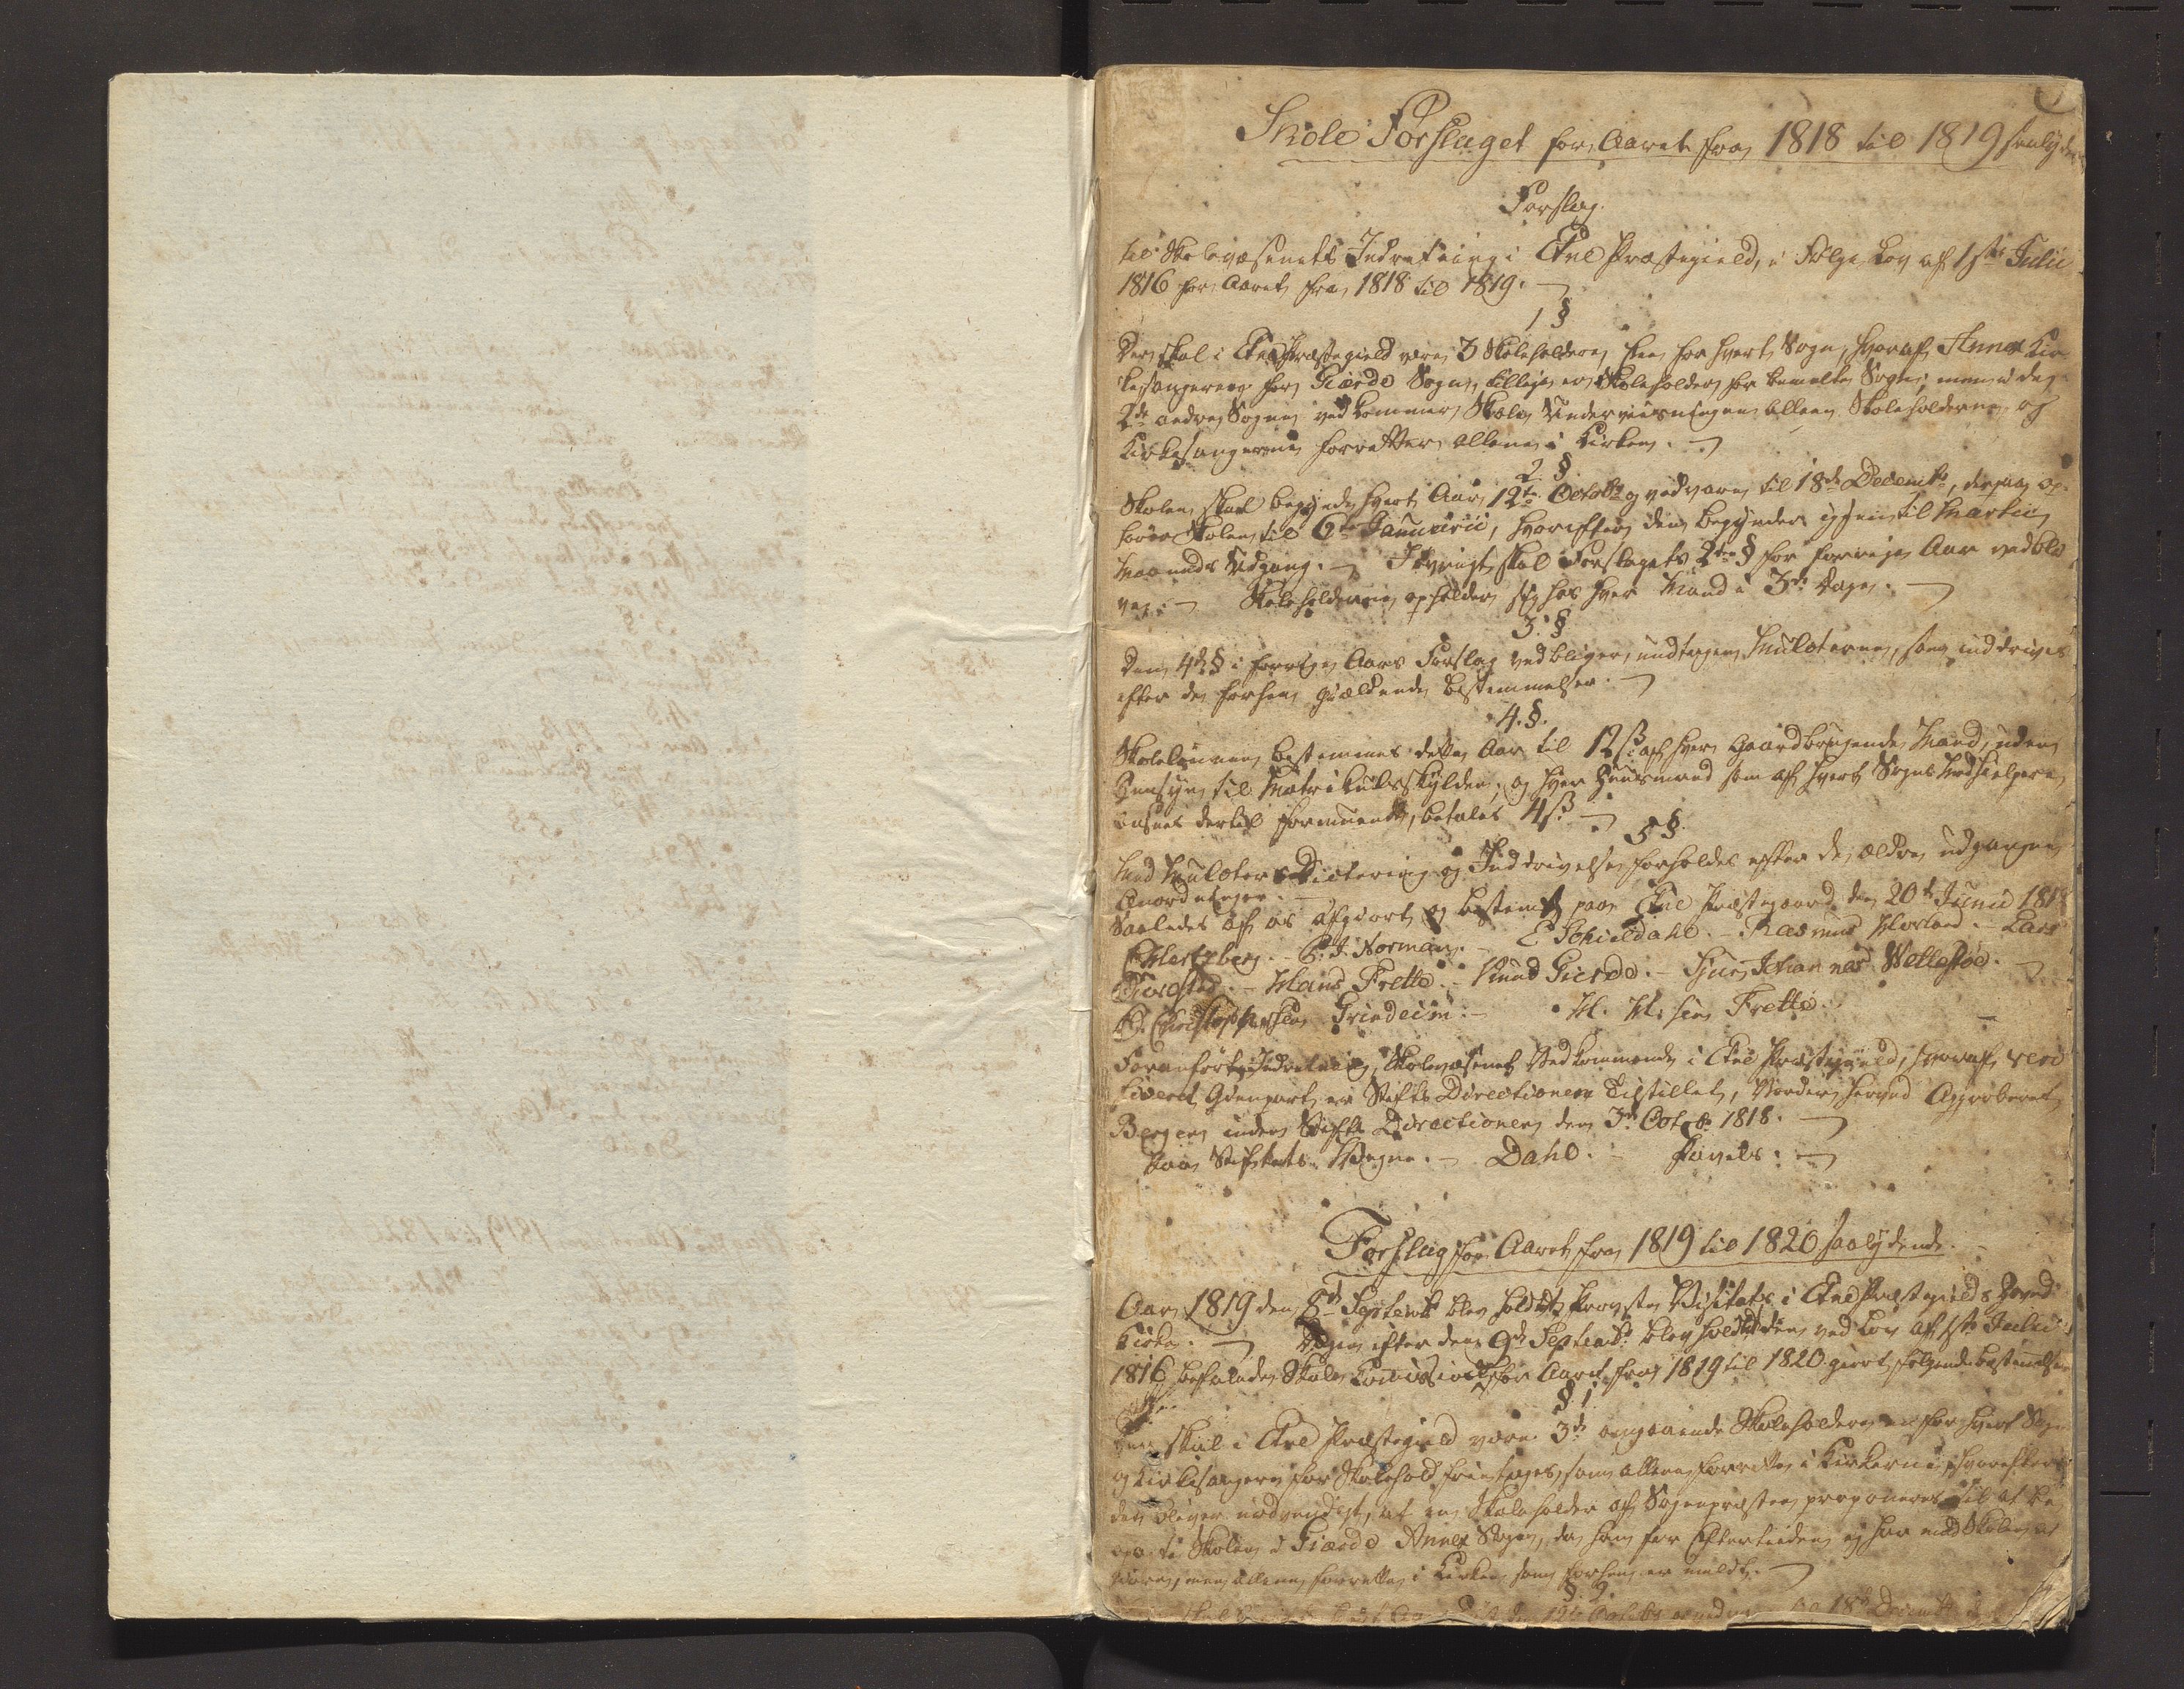 Skole Forslaget for Aaret fra 1818 til 1819 saalyder
Forslag
til Skolevæsenets Indretning i Etne Præstegield, i Følge Lov af 1ste Julii
1816 for Aaret fra 1818 til 1819.
1 §
Der skal i Etne Præstegield være 3 Skoleholdere, een for hvert Sogn, hvoraf Annex Kir-
kesangeren for Giærde Sogn, tillige er Skoleholder for bemelte Sogn; men i de
2de andre Sogne vedkommer Skole Underviisningen alleene Skoleholderne, og
Kirkesangerne forretter allene i Kirken.
2. §.
Skolen skal begynde hvert Aar 12te Octobr og vedvare til 18de Decembr, derpaa op-
hører Skolen til 6te Januarii, hvorefter den begynder igien til Martii
Maaneds Udgang. Iøvrigt skal Forslagets 2den § for forrige Aar vedbli-
ve. Skoleholderne opholder sig hos hver Mand i 3de Dage.
3. §
Den 4de § i forrige Aars Forslag vedbliver, undtagen Mulcterne, som inddrives
efter de forhen gieldende bestemmelser.
4. §.
Skolelønnen bestemmes dette Aar til 12 ß af hver Gaardbrugende Mand, uden
Hensyn til Matriculskylden; og hver Huusmand som af hvert Sogns Medhielpere
ansees dertil formuende, betales 4 ß.
5 §.
Med Mulcters Dictering og Inddrivelse forholdes efter de ældre udgangne
Anordninger.
Saaledes af os afgiort og bestemt paa Etne Præstegaard den 20de Junii 1818
Hertzberg. - Norman. - E Schieldahl. - Rasmus Hovland. - Lars
- Hans Frette. - Knud Gierde. - Siur Johannes Wetteføe.
Christophersen Grindeim. - H. H. sen Frette.
Foranførte Indretning, Skolevæsenet Vedkommende i Etne Præstegield, hvoraf veri-
ficeret Gienpart er Stifts Directionen Tilstillet, vorder herved Approberet
Bergens Stifts Directionen den 3de Octobr 1818.
Paa Stiftets Vegne. - Dahl. Pavels.
Forslag for Aaret fra 1819 til 1820 saalydende.
Aar 1819 den 8de Septembr blev holdt Provste Visitats i Etne Præstegields Hoved
Kirke. Dagen efter den 9de Septembr blev holdt den ved Lov af 1ste Julii
1816 befalede Skole Commission for Aaret fra 1819 til 1820 giort følgende bestemmelser
§ 1
Der skal i Etne Præstegield være 3de omgaaende Skoleholdere, en for hvert Sogn
og Kirkesangerne for Skolehold fritages, som allene forrette i Kirkerne, hvorefter
det bliver nødvendigt, at en Skoleholder af Sognepræsten proponeres til at be-
Skolen i Giærde Annex Sogn, da han for Eftertiden ej har med Skolen at
giøre, men allene forrette i Kirken som forhen er meldt.
§. 2.
Skal den 12te Octobr til 18de Decembr